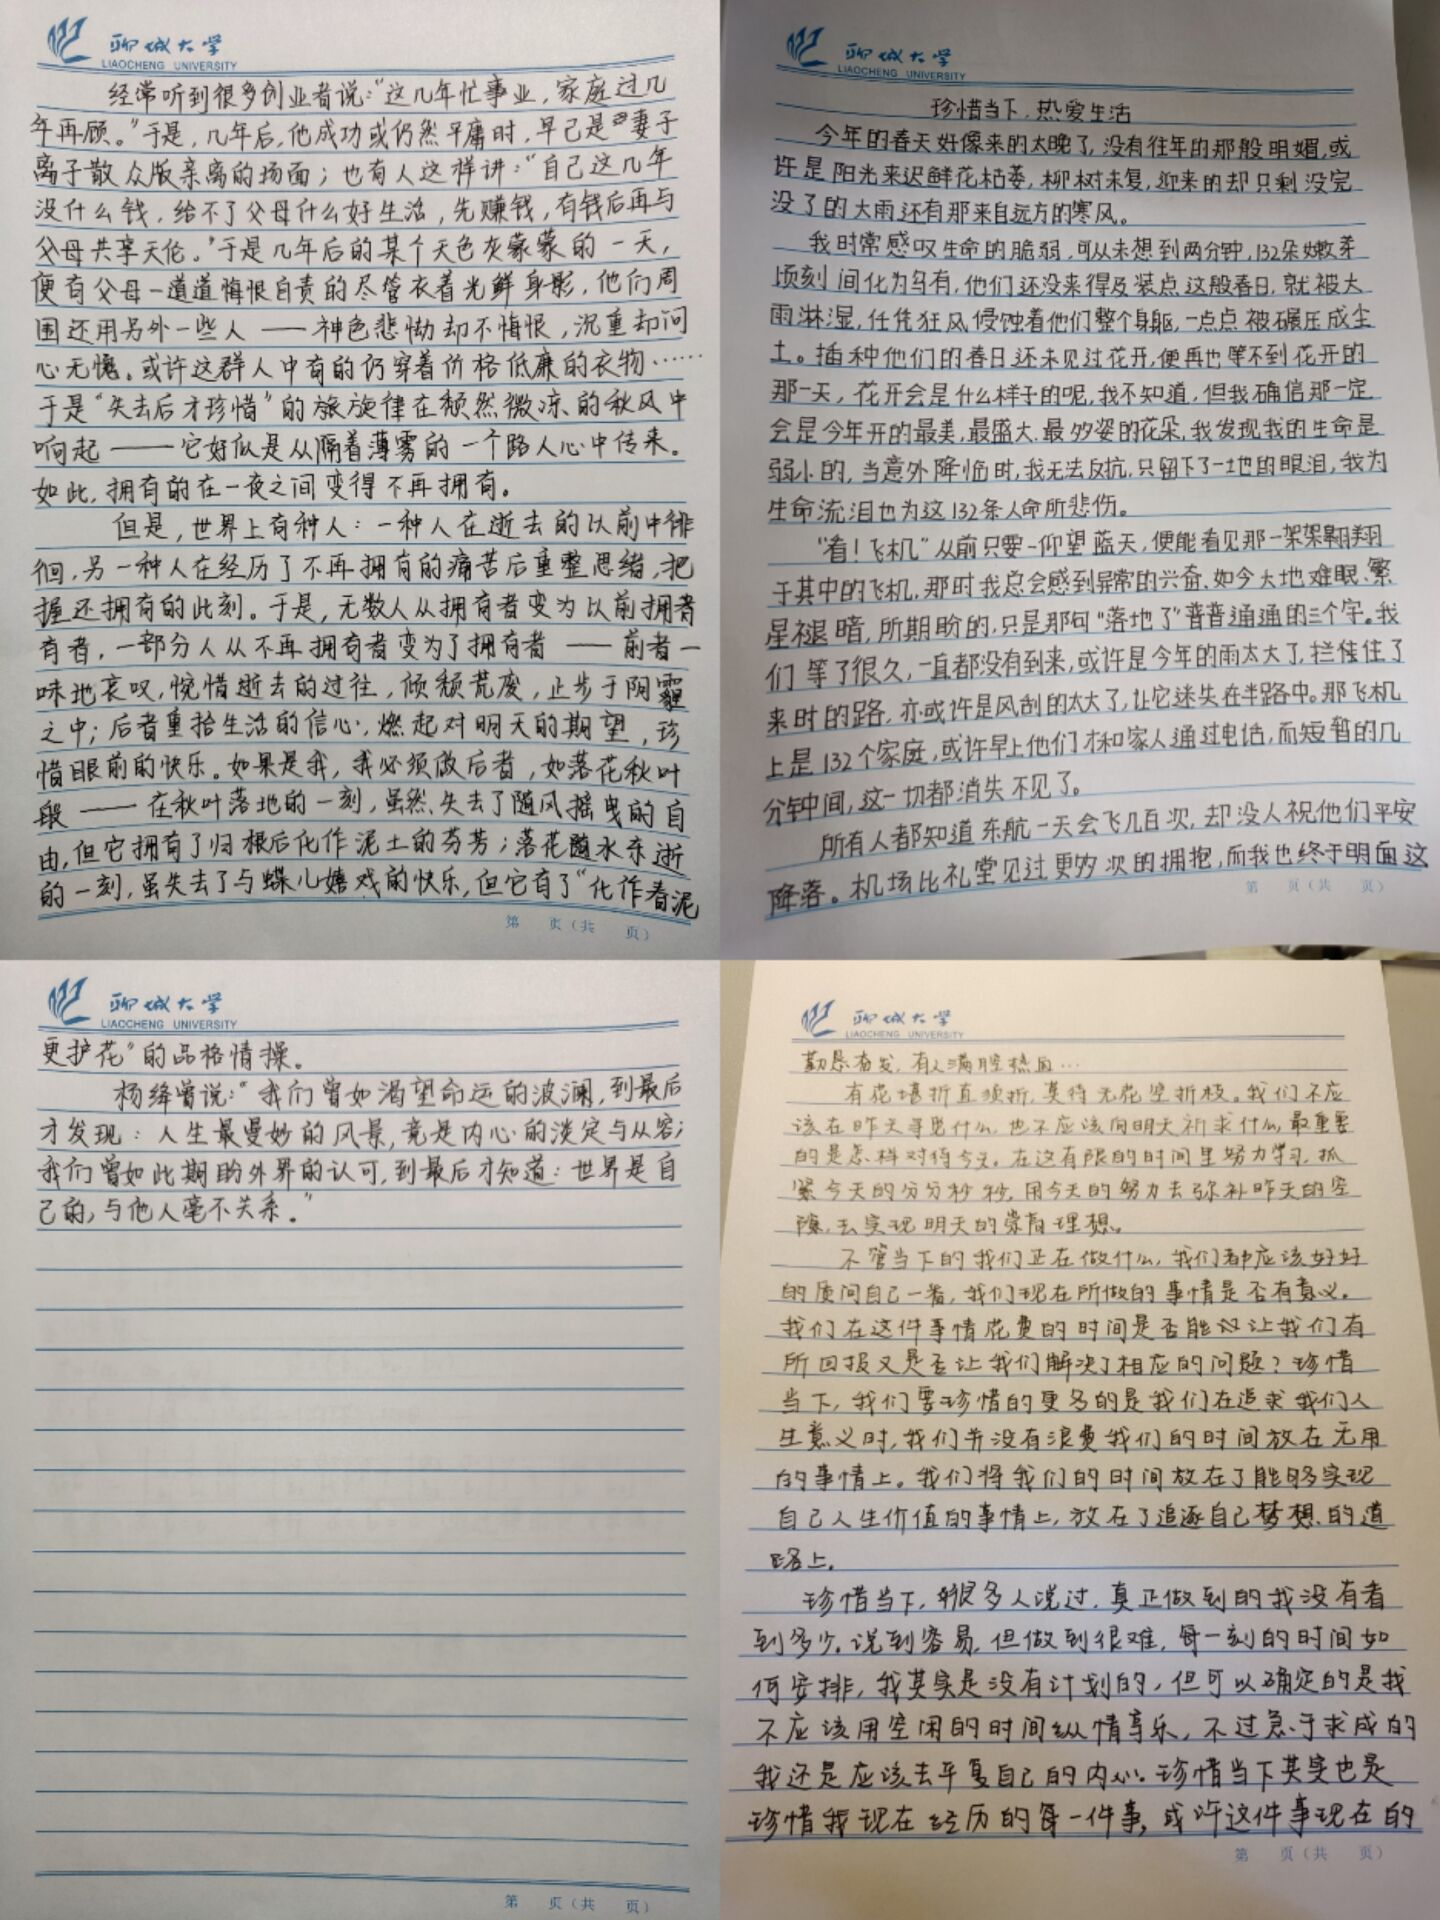 聊城大学
LIAOCHENG UNIVERSITY
经常听到很多创业者说：“这几年忙事业，家庭过几
年再顾。”于是，几年后，他成功或仍然平庸时，早已是妻子
离子散众版亲离的场面；也有人这样讲：“自己这几年
没什么钱，给不了父母什么好生活，先赚钱，有钱后再与
父母共享天伦。”于是几年后的某个天色灰蒙蒙的一天，
便有父母一道道悔恨自责的尽管衣着光鲜身影，他们周
围还用另外一些人——神色悲恸却不悔恨，沉重却问
心无愧。或许这群人中有的仍穿着价格低廉的衣物……
于是“失去后才珍惜”的旅旋律在颓然微凉的秋风中
响起——它好似是从隔着薄雾的一个路人心中传来。
如此，拥有的在一夜之间变得不再拥有。
但是，世界上有种人：一种人在逝去的以前中徘
徊，另一种人在经历了不再拥有的痛苦后重整思绪，把
握还拥有的此刻。于是，无数人从拥有者变为以前拥者
有者，一部分人从不再拥有者变为了拥有者——前者一
味地哀叹，惋惜逝去的过往，倾颓荒废，止步于阴霾
之中；后者重拾生活的信心，燃起对明天的期望，珍
惜眼前的快乐。如果是我，我必须做后者，如落花秋叶
段——在秋叶落地的一刻，虽然失去了随风摇曳的自
由，但它拥有了归根后化作泥土的芬芳；落花随水东逝
的一刻，虽失去了与蝶儿嬉戏的快乐，但它有了“化作春泥
第 页（共 页）
聊城大学
LIAOCHENG UNIVERSITY
珍惜当下，热爱生活
今年的春天好像来的太晚了，没有往年的那般明媚，或
许是阳光来迟鲜花枯萎，柳树未复，迎来的却只剩没完
没了的大雨还有那来自远方的寒风。
我时常感叹生命的脆弱，可从未想到两分钟，132朵嫩芽
顷刻间化为乌有，他们还没来得及装点这般春日，就被大
雨淋湿，任凭狂风侵蚀着他们整个身躯，一点点被碾压成尘
土。插种他们的春日还未见过花开，便再也等不到花开的
那一天，花开会是什么样子的呢，我不知道，但我确信那一定
会是今年开的最美，最盛大，最多姿的花朵，我发现我的生命是
弱小的，当意外降临时，我无法反抗，只留下了一地的眼泪，我为
生命流泪也为这132条人命所悲伤。
“看！飞机”从前只要一仰望蓝天，便能看见那一架架翱翔
于其中的飞机，那时我总会感到异常的兴奋，如今大地难眠、繁
星褪暗，所期盼的，只是那句“落地了”普普通通的三个字。我
们等了很久，一直都没有到来，或许是今年的雨太大了，拦住住了
来时的路，亦或许是风刮的太大了，让它迷失在半路中。那飞机
上是132个家庭，或许早上他们才和家人通过电话，而短暂的几
分钟间，这一切都消失不见了。
所有人都知道东航一天会飞几百次，却没人祝他们平安
降落。机场比礼堂见过更多次的拥抱，而我也终于明面这
第 页（共 页）
聊城大学
LIAOCHENG UNIVERSITY
更护花”的品格情操。
杨绛曾说：“我们曾如渴望命运的波澜，到最后
才发现：人生最曼妙的风景，竟是内心的淡定与从容；
我们曾如此期盼外界的认可，到最后才知道：世界是自
己的，与他人毫不关系。”
第 页（共 页）
聊城大学
LIAOCHENG UNIVERSITY
勤恳奋发，有人满腔热血…
有花堪折直须折，莫待无花空折枝。我们不应
该在昨天寻觅什么，也不应该向明天祈求什么，最重要
的是怎样对待今天。在这有限的时间里努力学习，抓
紧今天的分分秒秒，用今天的努力去弥补昨天的空
隙，去实现明天的崇高理想。
不管当下的我们正在做什么，我们都应该好好
的质问自己一番，我们现在所做的事情是否有意义。
我们在这件事情花费的时间是否能让我们有
所回报又是否让我们解决了相应的问题？珍惜
当下，我们要珍惜的更多的是我们在追求我们人
生意义时，我们并没有浪费我们的时间放在无用
的事情上。我们将我们的时间放在了能够实现
自己人生价值的事情上，放在了追逐自己梦想的道
路上。
珍惜当下，很多人说过，真正做到的我没有看
到多少。说到容易，但做到很难，每一刻的时间如
何安排，我其实是没有计划的，但可以确定的是我
不应该用空闲的时间纵情享乐，不过急于求成的
我还是应该去平复自己的内心。珍惜当下其实也是
珍惜我现在经历的每一件事，或许这件事现在的
第 页（共 页）